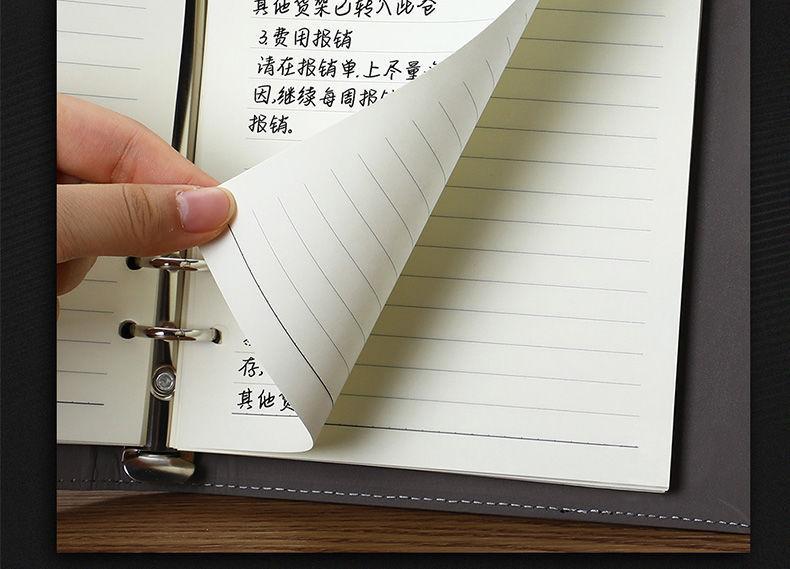 其他货架已转入此仓
3.费用报销
请在报销单上尽量
因,继续每周报
报销。
存,
其他